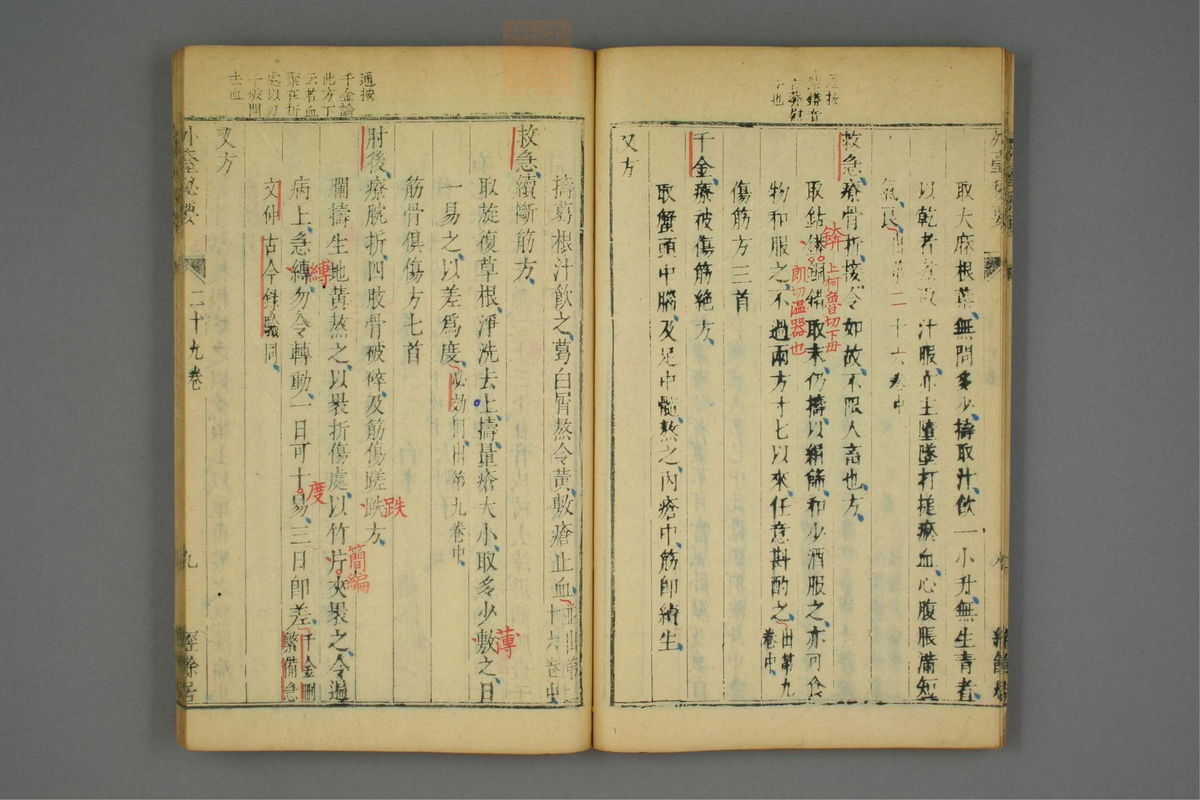 取大麻根葉無問多少擣取汁飲一小升無生青者
以乾者煮取汁服亦主墮墜打搥瘀血心腹脹滿短
氣良出第二十六卷中
救急療骨折接令如故不限人畜也方
取鈷鏻銅錯取末仍擣以絹篩和少酒服之亦可食
物和服之不過兩方寸匕以來任意斟酌之出第九卷中
傷筋方三首
千金療被傷筋絕方
取蟹頭中腦及足中髓熬之內瘡中筋即續生
又方
上柯魯切下毋
朗切溫器也
擣葛根汁飲之葛白屑熬令黃敷瘡止血
十六卷中
救急續斷筋方
取旋復草根淨洗去土擣量瘡大小取多少敷之日
薄
一易之以差爲度必効同出第九卷中
筋骨俱傷方七首
肘後療腕折四肢骨破碎及筋傷蹉跌方
跌
爛擣生地黃熬之以裹折傷處以竹片夾裹之令遍
簡編
病上急縛勿令轉動一日可十易三日即差千金刪繁備急
縛
度
文仲古今錄驗同
又方
外臺祕要
二十九卷
九
經餘居
通按
千金論
此方下
云若血
聚在折
處以刀
子破開
去血